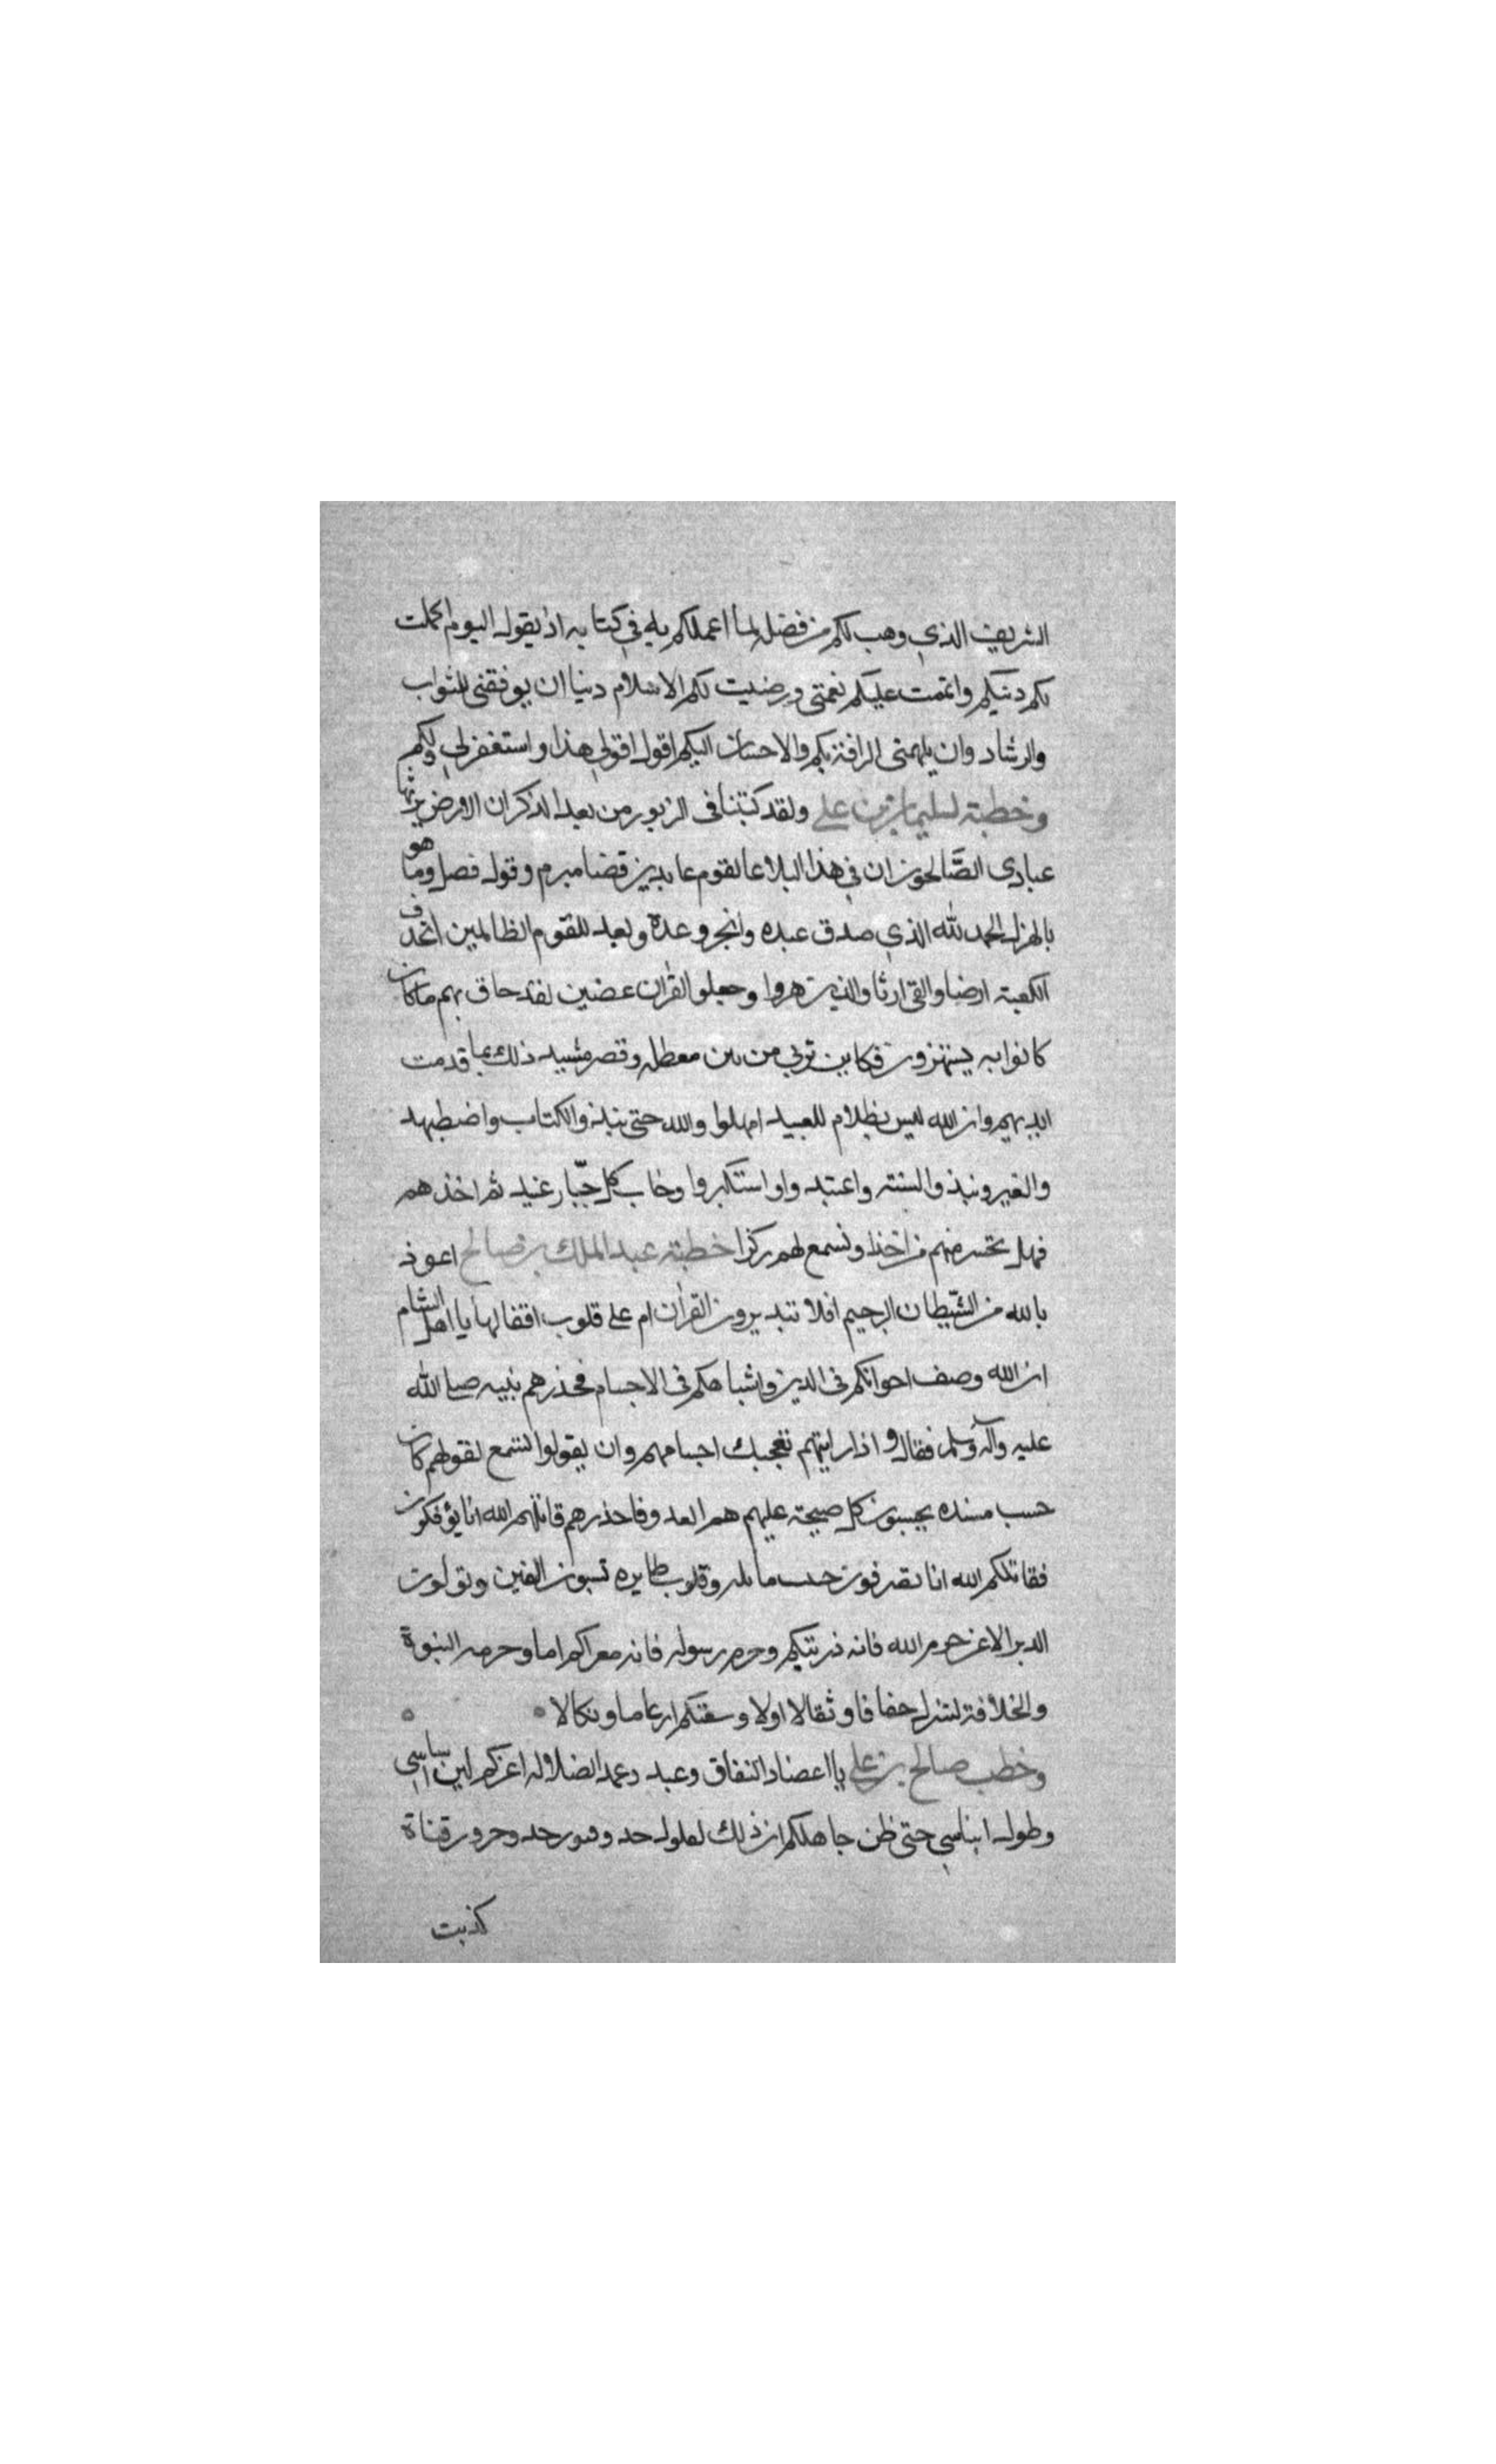 الشريف الذي وهب لكم من فضله لما اعملكم به في كتابه اذ يقول اليوم اكملت
لكم دينكم واتممت عليكم نعمتي ورضيت لكم الاسلام دينا ان يوفقني للثواب
والرشاد وان يلهمني الرافة بكم والاحسان اليكم اقول قولي هذا واستغفر لي ولكم
وخطبة لسليمان بن علي ولقد كتبنا في الزبور من بعد الذكر ان الارض يرثها
عبادي الصالحون ان في هذا البلاغا لقوم عابدين قضا مبرم وقول فصل وما هو
بالهزل الحمد لله الذي صدق عبده وانجز وعدة وبعد للقوم الظالمين اتخذ
الكعبة ارضا والفي ارثا والدين هزوا وجعلو القران عضين لقد حاق بهم ما كان
كانوا به يستهزون فكاين تري من بئر معطله وقصر مشيد ذلك بما قدمت
ايديهم وان الله ليس بظلام للعبيد امهلوا والله حتى نبذوا الكتاب واضطهد
والغير ونبذوا السنة واعتدوا واستكبروا وخاب كل جبار عنيد ثم اخذهم
فهل تحس منهم من احد او تسمع لهم ركزا خطبة عبد الملك بن صالح اعوذ
بالله من الشيطان الرجيم افلا يتدبرون القران ام على قلوب اقفالها يا اهل الشام
ان الله وصف اخوانكم في الدين واشباهكم في الاجسام فحذرهم نبيه صلى الله
عليه وآله وسلم فقال واذا رايتهم تعجبك اجسامهم وان يقولوا تسمع لقولهم كان
خشب مسنده يحسبون كل صيحة عليهم هم العدو فاحذرهم قاتلهم الله انا يؤفكون
فقاتلكم الله انا تصرفون وقلوب طايره تسبون الفتن وتولون
الدبر الا عن حرم الله فانه ذريتكم وحرم رسوله فانه اما وحرمه النبوة
والخلافة لتنزل خفافا وثقالا اولا وسعتكم ارغاما ونكالا
وخطب صالح بن علي يا اعضاد النفاق وعبد وعمد الضلاله اغركم لين اساسي
وطول ايناسي حتى ظن جاهلكم ان ذلك لفلول حد وفتور جد وخور قناة
كذبت